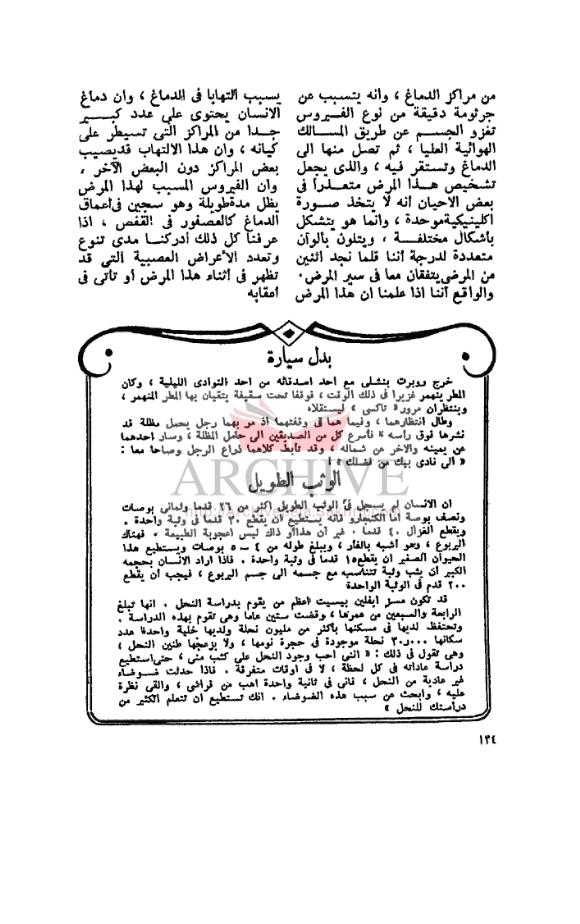 من مراكز الدماغ ، وأنه يتسبب عن
جرثومة دقيقة من نوع الفيروس
تغزو الجسم عن طريق المسالك
الهوائية العليا ، ثم تصل منها الى
الدماغ وتستقر فيه ، والذى يجعل
تشخيص هذا المرض متعذرا فى
بعض الاحيان أنه لا يتخذ صورة
اكلينيكية موحدة ، وانما هو يتشكل
بأشكال مختلفة ، ويتلون بألوان
متعددة لدرجة أننا قلما نجد اثنين
من المرضى يتفقان معا فى سير المرض.
والواقع أننا اذا علمنا ان هذا المرض
يسبب التهابا فى الدماغ ، وان دماغ
الانسان يحتوى على عدد كبير
جدا من المراكز التى تسيطر على
كيانه ، وان هذا الالتهاب قد يصيب
بعض المراكز دون البعض الآخر ،
وان الفيروس المسبب لهذا المرض
يظل مدة طويلة وهو سجين فى أعماق
الدماغ كالعصفور فى القفص ، اذا
عرفنا كل ذلك أدركنا مدى تنوع
وتعدد الأعراض العصبية التى قد
تظهر فى أثناء هذا المرض أو تأتى فى
أعقابه
بدل سيارة
خرج روبرت بنشلى مع احد اصدقائه من احد النوادى الليلية ، وكان
المطر ينهمر غزيرا فى ذلك الوقت ، فوقفا تحت سقيفة يتقيان بها المطر المنهمر ،
وينتظران مرور « تاكسى » ليستقلاه
وطال انتظارهما ، وفيما هما فى وقفتهما اذ مر بهما رجل يحمل مظلة قد
نشرها فوق رأسه « فأسرع كل من الصديقين الى حامل المظلة ، وسار احدهما
عن يمينه والآخر عن شماله ، وقد تأبط كلاهما ذراع الرجل وصاحا معا :
« الى نادى بيك من فضلك » !
ARCHIVE
الوثب الطويل
ان الانسان لم يسجل فى الوثب الطويل اكثر من ٢٦ قدما وثمانى بوصات
ونصف بوصة أما الكنجارو فانه يستطيع أن يقطع ٣٠ قدما فى وثبة واحدة .
ويقطع الغزال ٤٠ قدما . غير أن هذا أو ذاك ليس أعجوبة الطبيعة . فهناك
اليربوع ، وهو أشبه بالفأر ، ويبلغ طوله من ٤ – ٥ بوصات ويستطيع هذا
الحيوان الصغير ان يقطع ١٥ قدما فى وثبة واحدة . فاذا اراد الانسان بحجمه
الكبير أن يثب وثبة تتناسب مع جسمه الى جسم اليربوع ، فيجب أن يقطع
٢٠٠ قدم فى الوثبة الواحدة
قد تكون مسز ايفلين بيسيت أعظم من يقوم بدراسة النحل . انها تبلغ
الرابعة والسبعين من عمرها ، وقضت ستين عاما وهى تقوم بهذه الدراسة .
وتحتفظ لديها فى مسكنها بأكثر من مليون نحلة ولديها خلية واحدة عدد
سكانها ٣٠٫٠٠٠ نحلة موجودة فى حجرة نومها ، ولا يزعجها طنين النحل ،
وهى تقول فى ذلك : « اننى احب وجود النحل على كثب منى ، حتى استطيع
دراسة عاداته فى كل لحظة ، لا فى اوقات متفرقة . فاذا حدثت ضوضاء
غير عادية من النحل ، فانى فى ثانية واحدة اهب من فراشى ، والقى نظرة
عليه ، وابحث عن سبب هذه الضوضاء . انك تستطيع ان تتعلم الكثير من
دراستك للنحل »
١٣٤